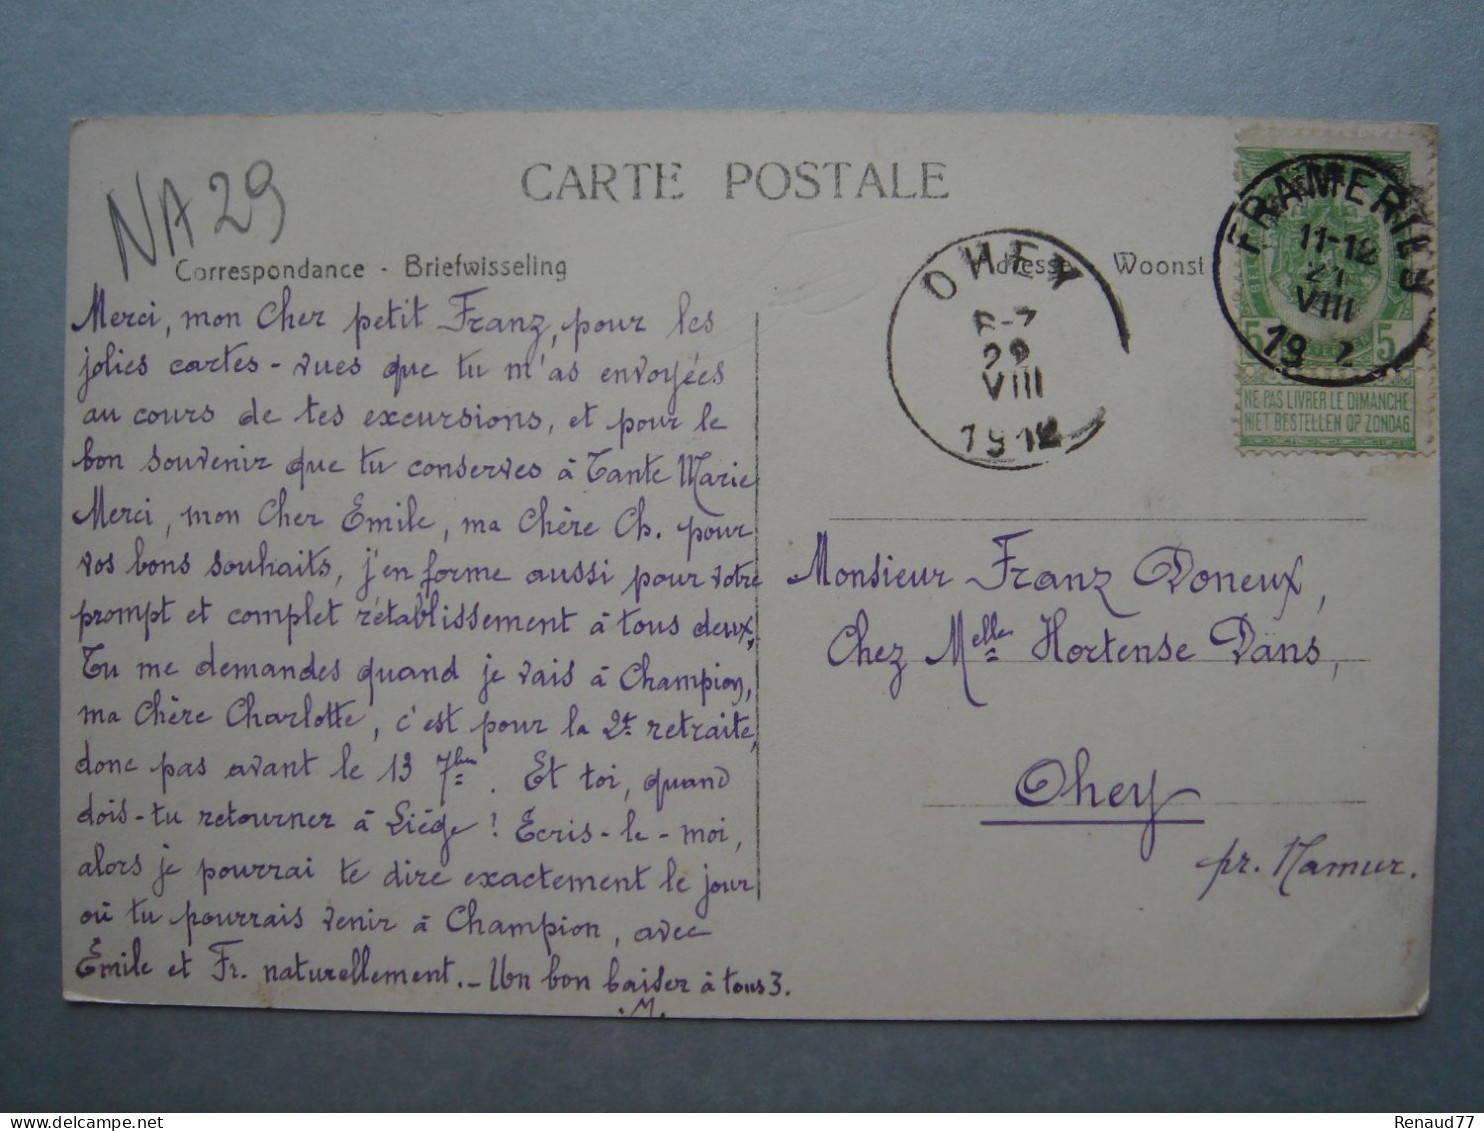 NA 29
CARTE POSTALE
Correspondance - Briefwisseling
Adresse Woonst
Merci, mon cher petit Franz, pour les
jolies cartes-vues que tu m'as envoyées
au cours de tes excursions, et pour le
bon souvenir que tu conserves à Tante Marie
Merci, mon cher Emile, ma chère Ch. pour
vos bons souhaits, j'en forme aussi pour votre
prompt et complet rétablissement à tous deux.
Tu me demandes quand je vais à Champion,
ma chère Charlotte, c'est pour la 2e retraite,
donc pas avant le 13 7bre. Et toi, quand
dois-tu retourner à Liége! Ecris-le-moi,
alors je pourrai te dire exactement le jour
où tu pourrais venir à Champion, avec
Emile et Fr. naturellement. - Un bon baiser à tous 3.
M.
OHEY
22
VIII
1912
FRAMERIES
11-12
21
VIII
19 2
5 5
NE PAS LIVRER LE DIMANCHE
NIET BESTELLEN OP ZONDAG
Monsieur Franz Doneux,
Chez Melle Hortense Dans,
Ohey
pr. Namur.
Renaud77